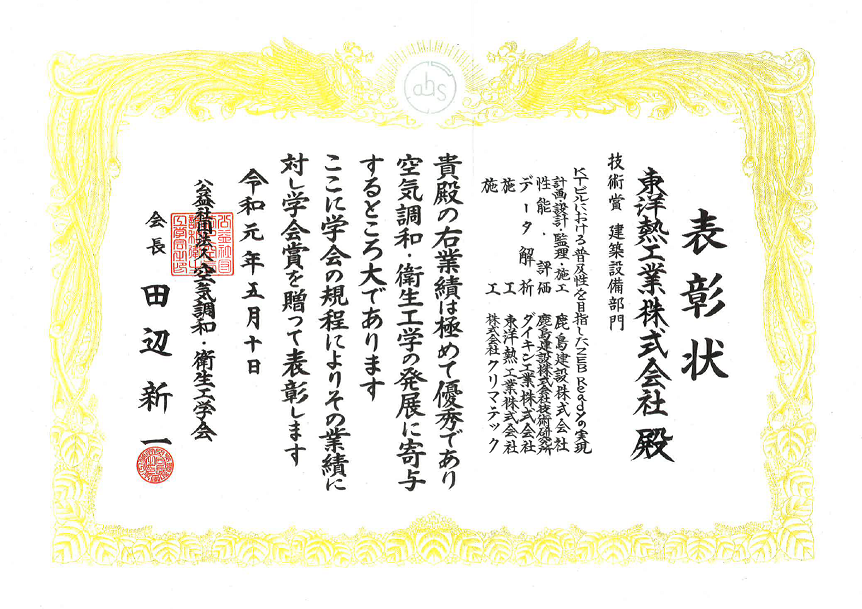 表彰状
東洋熱工業株式会社 殿
技術賞 建築設備部門
KTビルにおける普及性を目指したZEB Readyの実現
計画・設計・監理・施工 鹿島建設株式会社
性能・評価 鹿島建設株式会社技術研究所
データ解析 ダイキン工業株式会社
施工 東洋熱工業株式会社
施工 株式会社クリマテック
貴殿の右業績は極めて優秀であり
空気調和・衛生工学の発展に寄与
するところ大であります
ここに学会の規程によりその業績に
対し学会賞を贈って表彰します
令和元年五月十日
公益社団法人 空気調和・衛生工学会
会長 田辺新一